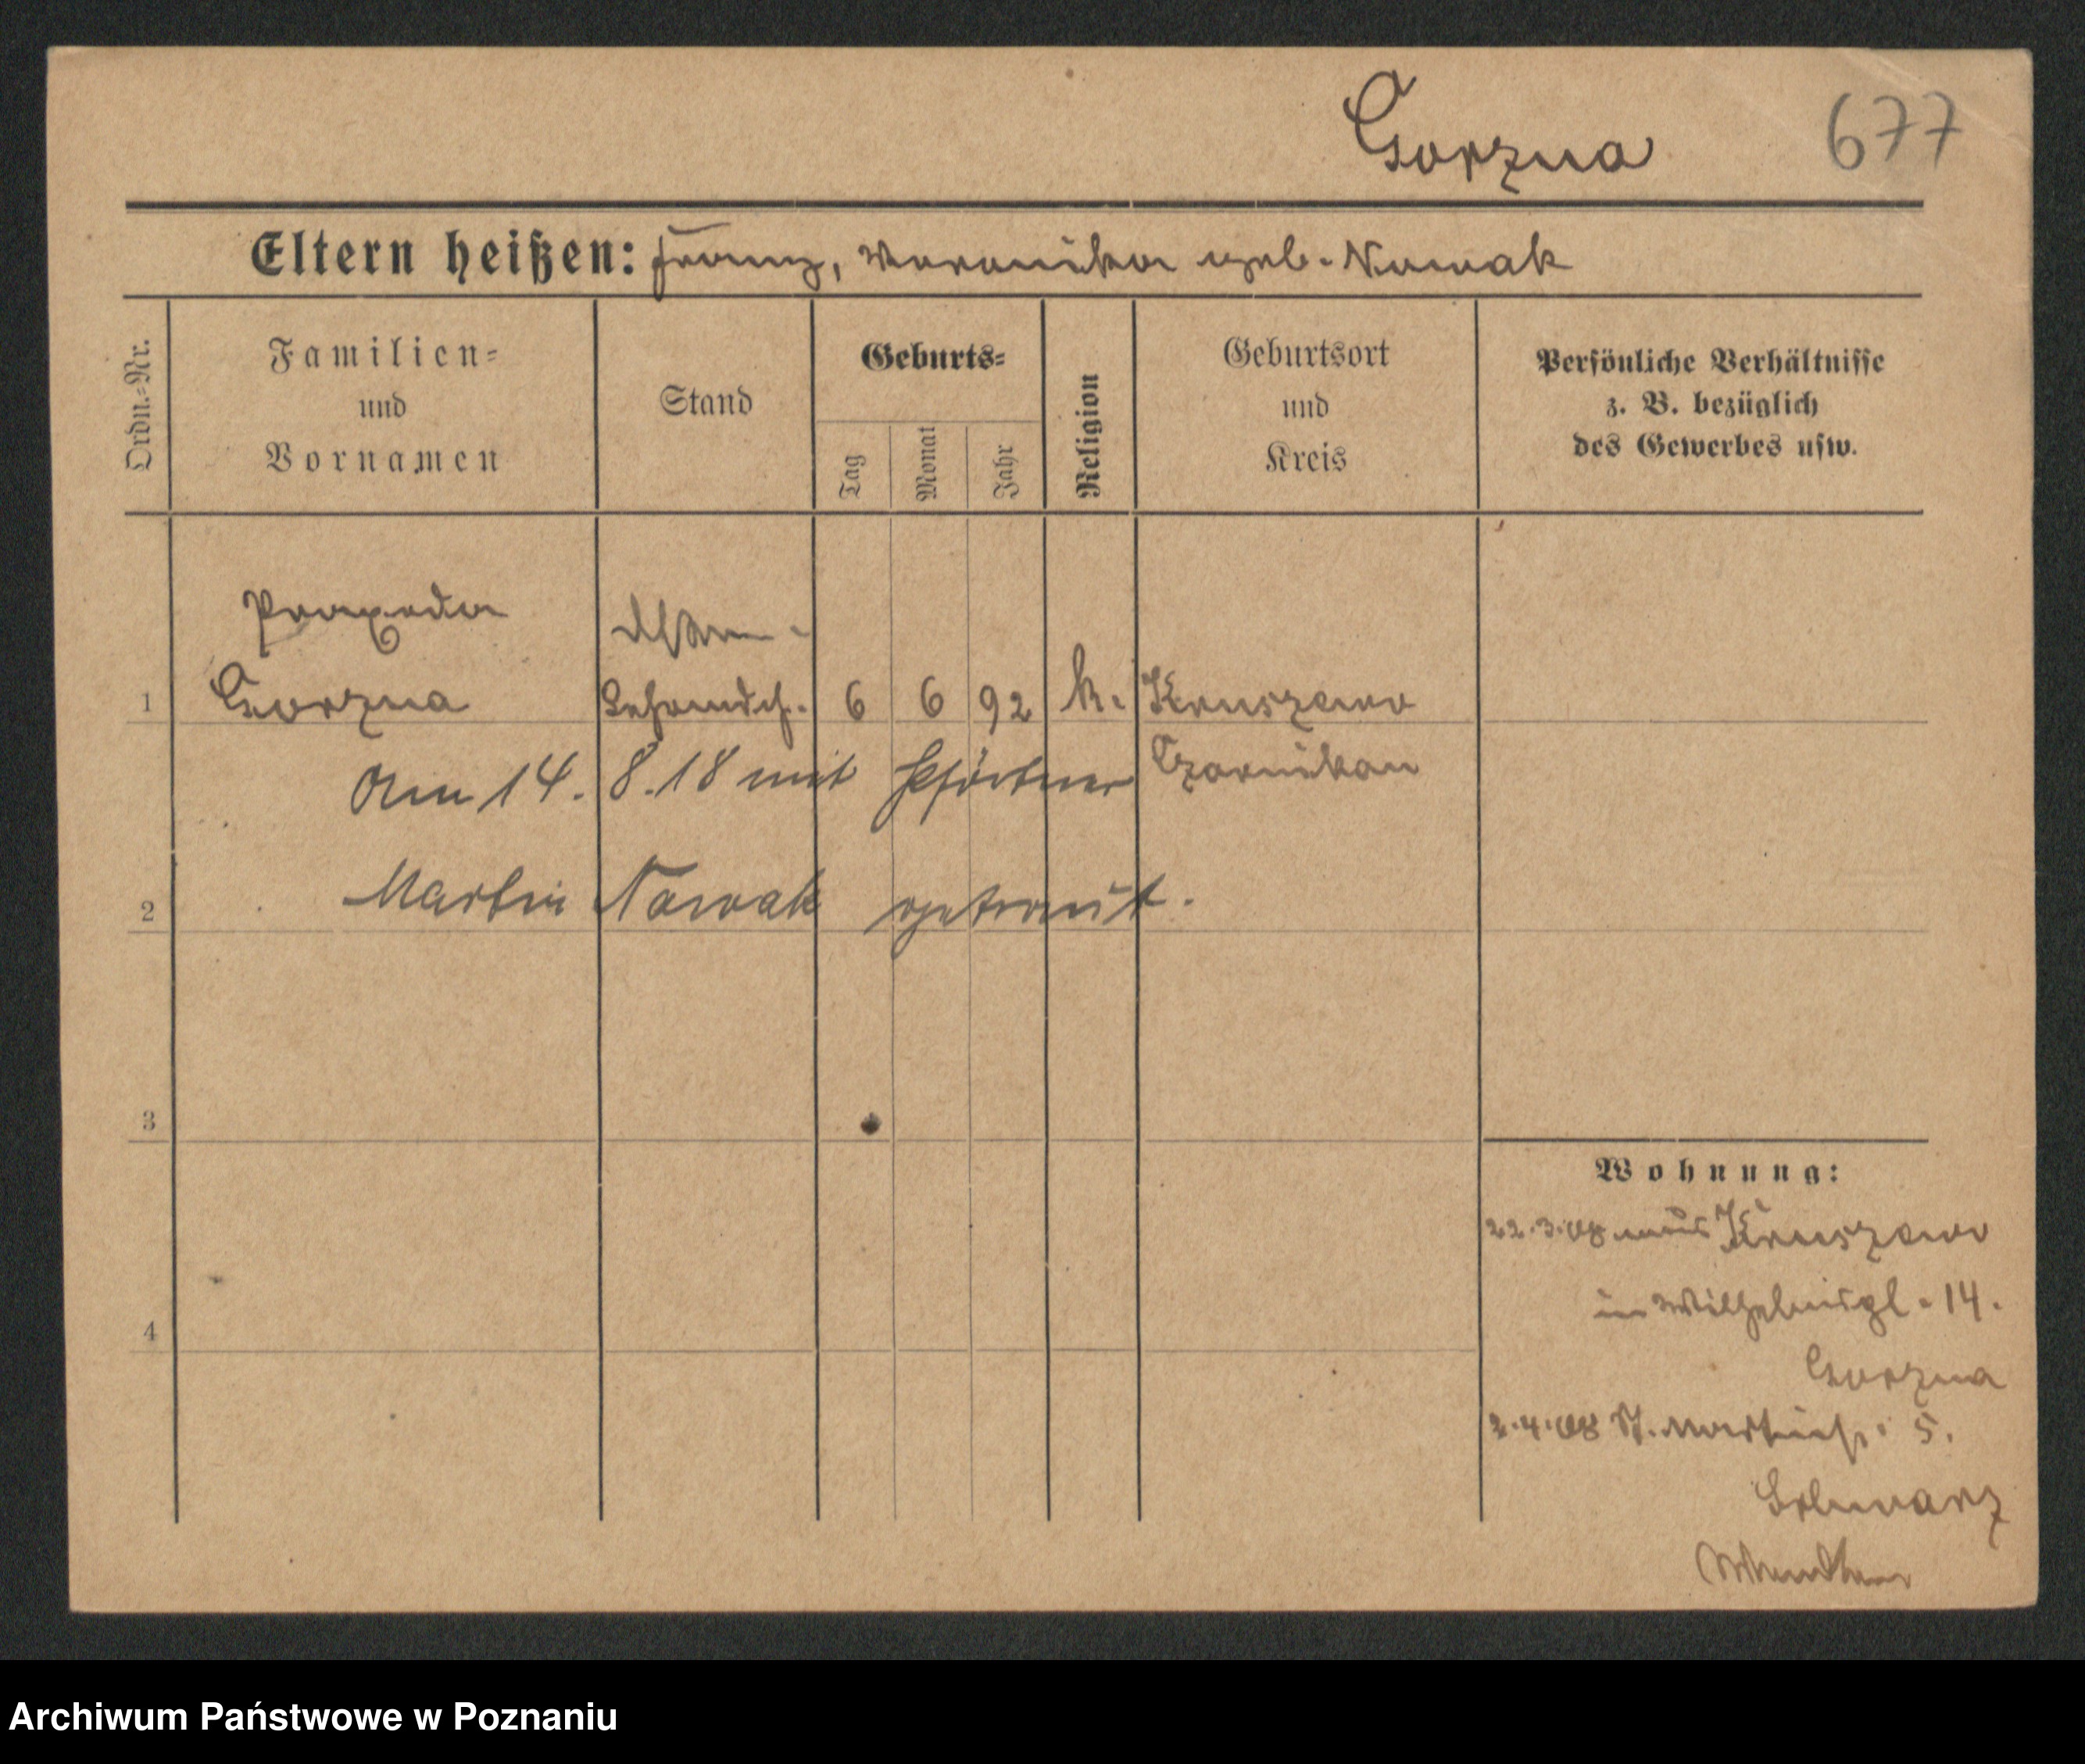 Gorzna 677
Eltern heißen: Franz, Veronika geb. Nowak
Ordn.-Nr.
Familien-
und
Vornamen
Stand
Geburts-
Tag
Monat
Jahr
Religion
Geburtsort
und
Kreis
Persönliche Verhältnisse
z. B. bezüglich
des Gewerbes usw.
Praxeda
1 Gorzna 6 6 92 k. Kruszewo
Am 14. 8. 18 mit Pförtner Czarnikau
2 Martin Nowak getraut.
3
Wohnung:
22.3.08 aus Kruszewo
4 in Wilhelmspl. 14.
Gorzna
2.4.08 St. Martinstr. 5.
Schwarz
Archiwum Państwowe w Poznaniu